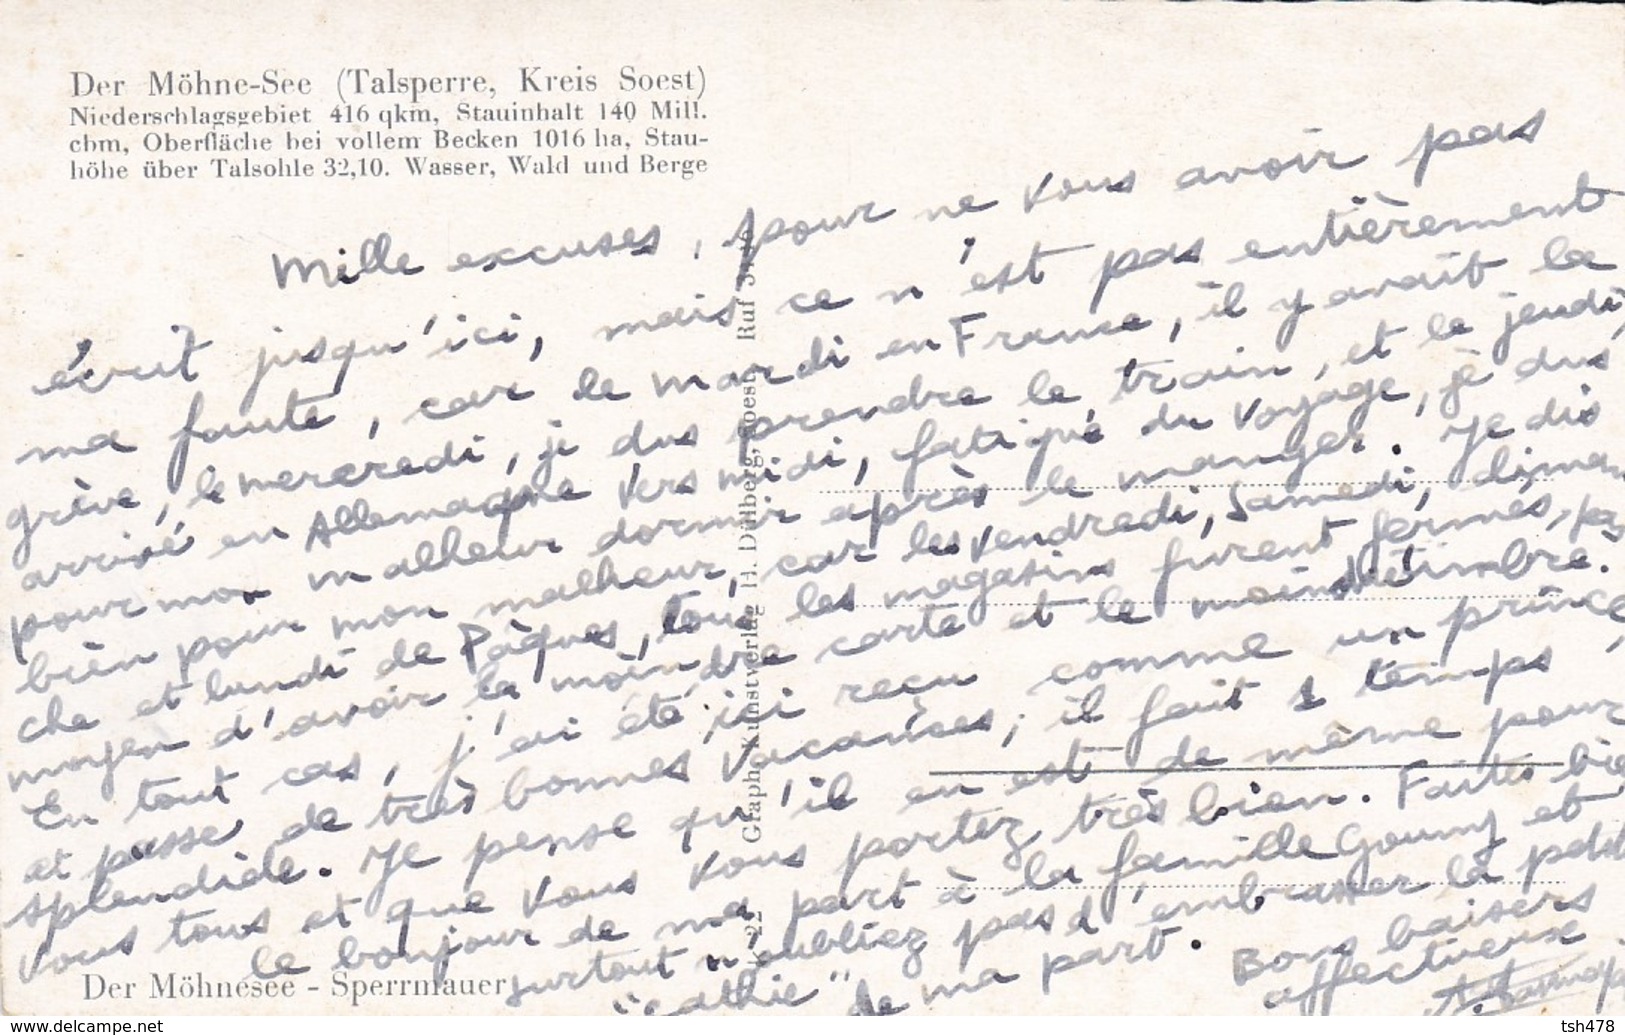 Der Möhne-See (Talsperre, Kreis Soest)
Niederschlagsgebiet 416 qkm, Stauinhalt 140 Mill.
cbm, Oberfläche bei vollem Becken 1016 ha, Stau-
höhe über Talsohle 32,10. Wasser, Wald und Berge
Mille excuses, pour ne vous avoir pas
écrit jusqu'ici, mais ce n'est pas entièrement
ma faute, car le mardi en France, il y avait la
grève, le mercredi, je dus prendre le train, et le jeudi,
arrivé en Allemagne vers midi, fatigué du voyage, je dus
pour mon malheur dormir après le manger. Je dis
bien pour mon malheur, car les vendredi, samedi, diman
che et lundi de Pâques, tous les magasins furent fermés, pas
moyen d'avoir la moindre carte et le moindre timbre.
En tout cas, j'ai été ici reçu comme un prince,
et passe de très bonnes vacances, il fait 1 temps
splendide. Je pense qu'il en est de même pour
vous tous et que vous vous portez très bien. Faites bien
le bonjour de ma part à la famille Goumy et
surtout n'oubliez pas d'embrasser la petite
"cathie" de ma part. Bons baisers
affectueux
Graph. Kunstverlag H. Dülberg, Soest Ruf
Der Möhnesee - Sperrmauer
www.delcampe.net
tsh478